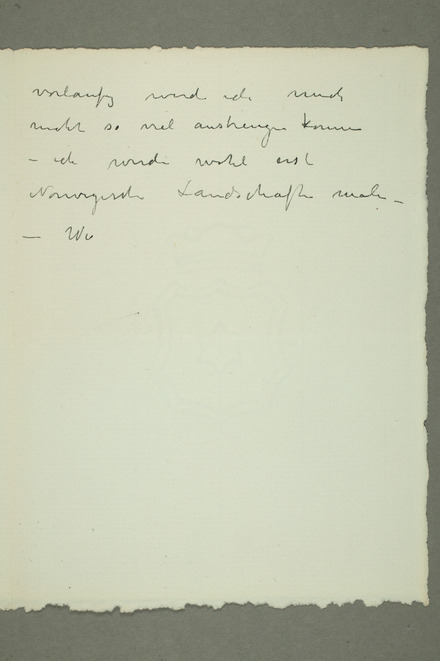 vorlaufig werde ich mich
nicht so viel anstrengen können
– ich werde wohl erst
Norwegische Landschafte male –
– We